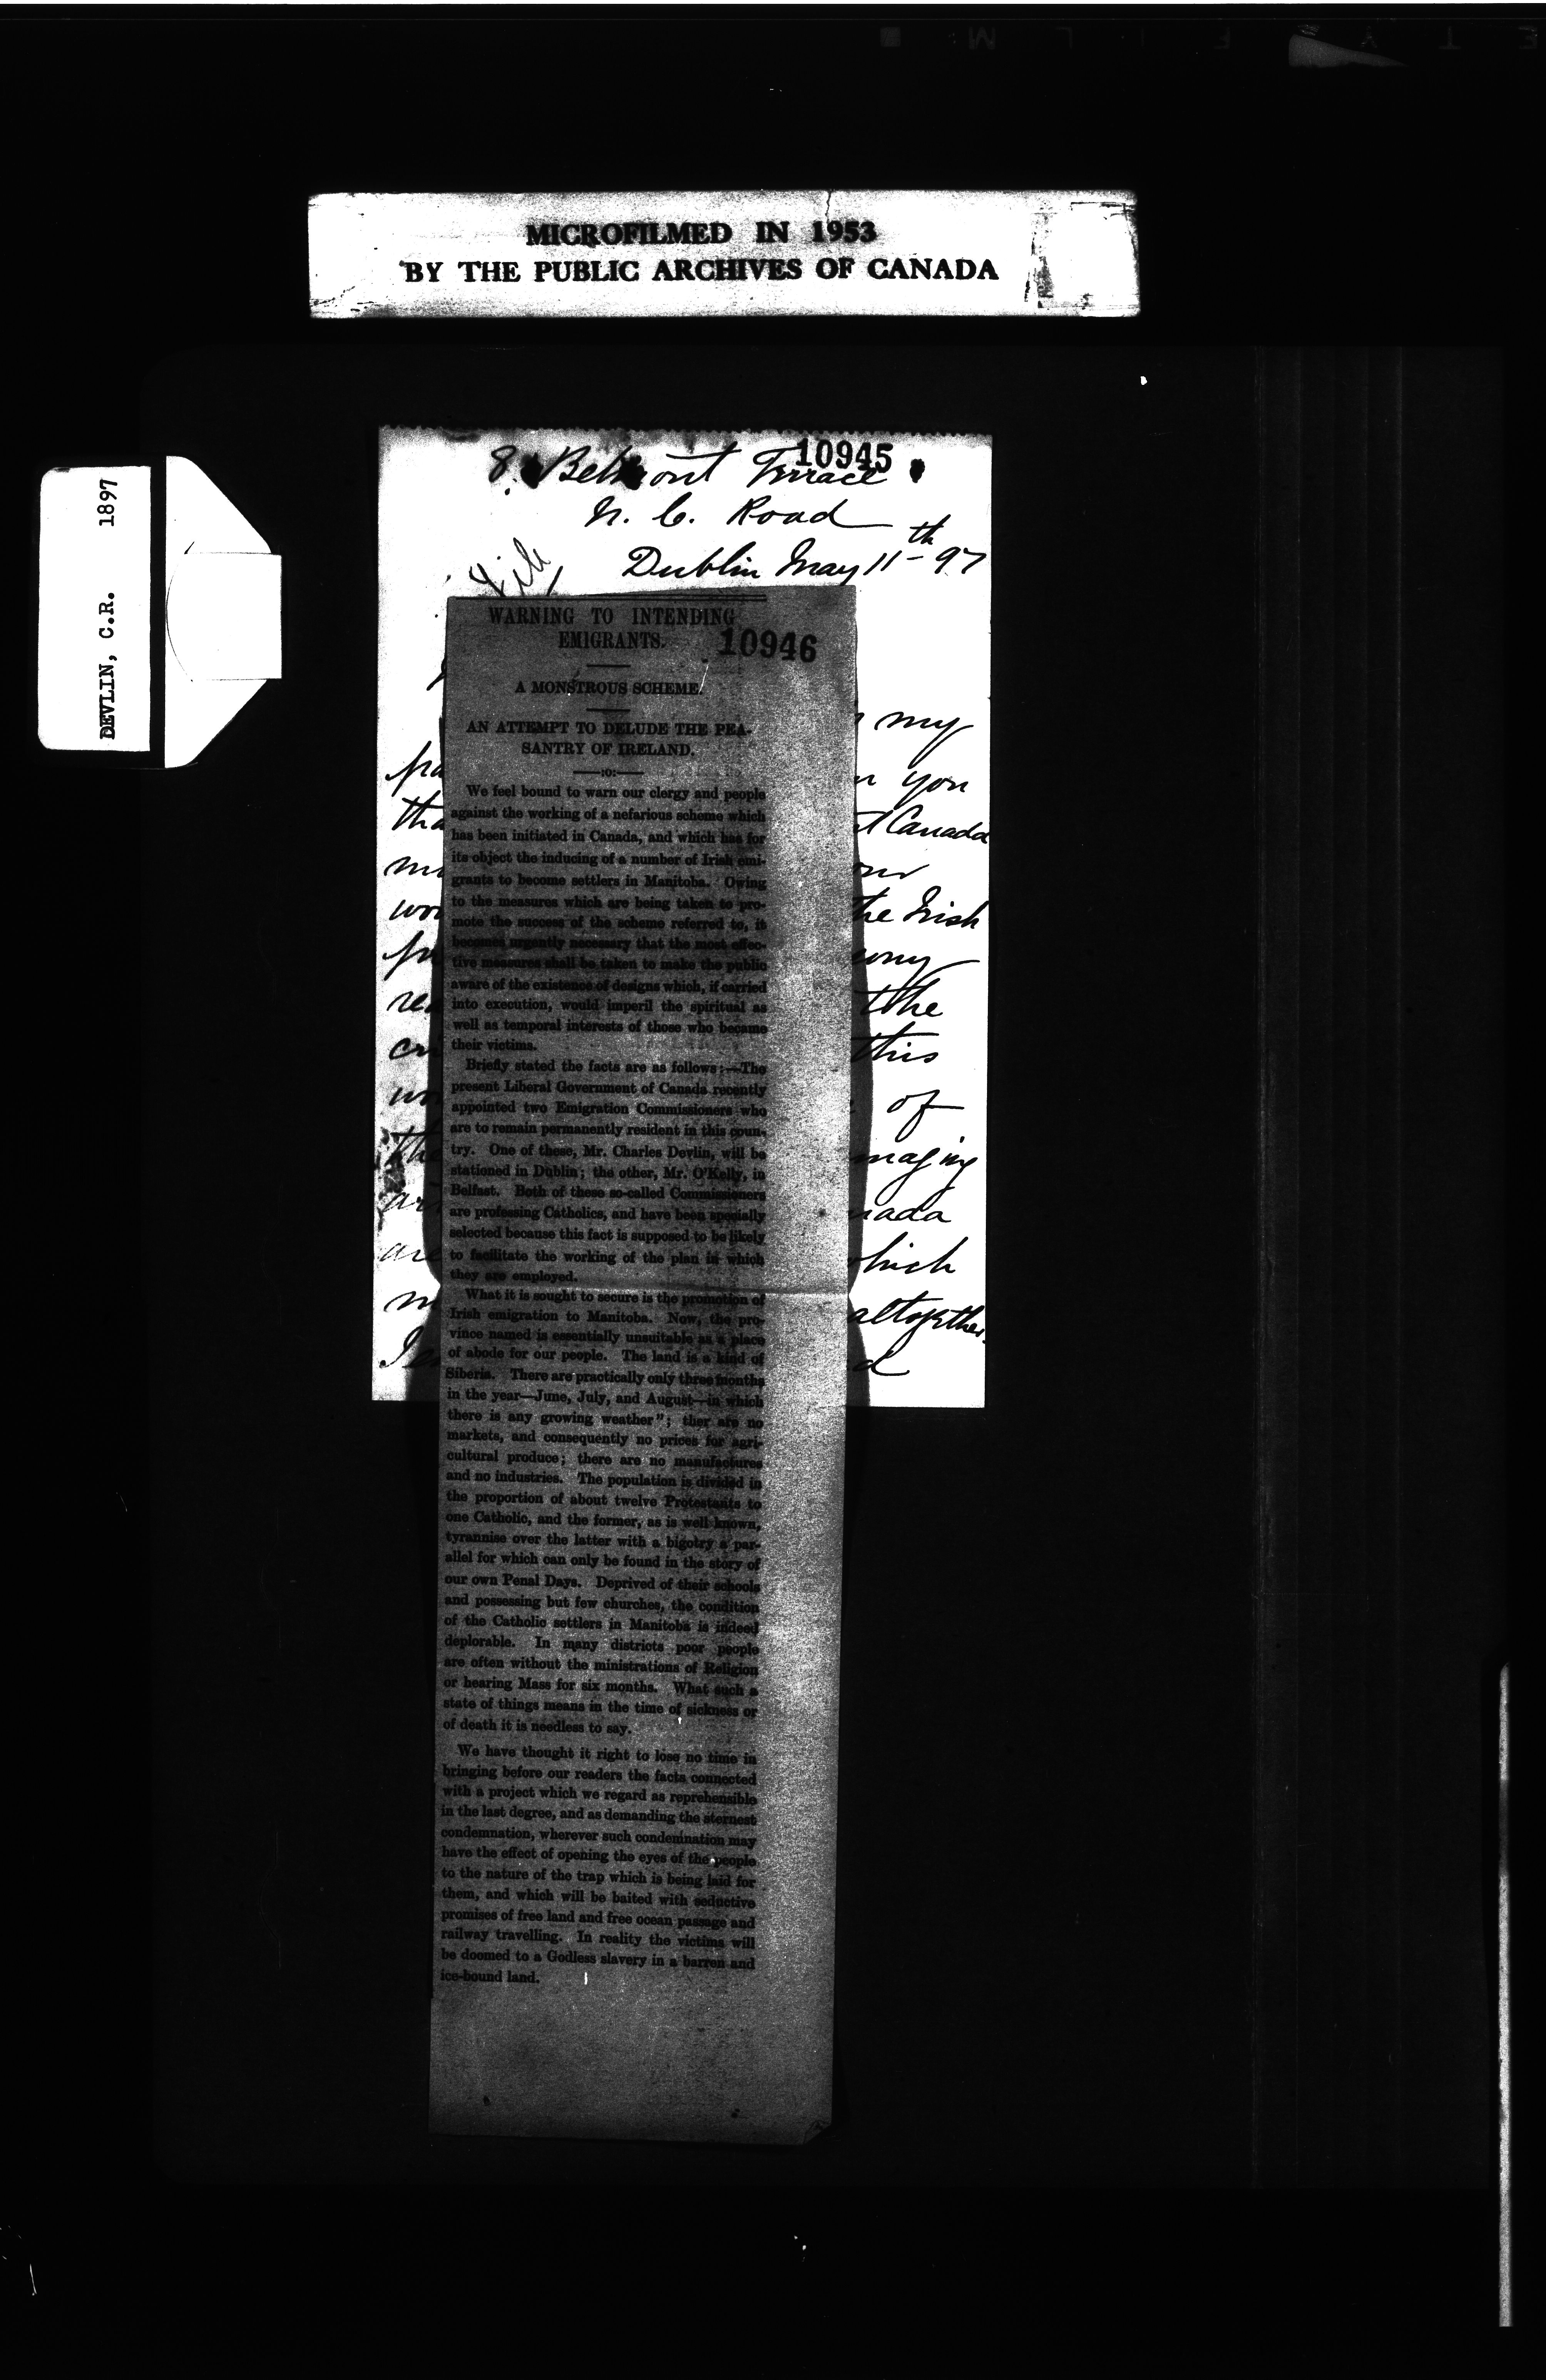 MICROFILMED IN 1953
BY THE PUBLIC ARCHIVES OF CANADA
DEVLIN, C.R. 1897
10945
8. Belmont Terrace
N. C. Road
Dublin May 11th 97
my
you
Canada
the Irish
the
this
of
which
altogether
10946
WARNING TO INTENDING
EMIGRANTS.
A MONSTROUS SCHEME.
AN ATTEMPT TO DELUDE THE PEA-
SANTRY OF IRELAND.
:o:
We feel bound to warn our clergy and people
against the working of a nefarious scheme which
has been initiated in Canada, and which has for
its object the inducing of a number of Irish emi-
grants to become settlers in Manitoba. Owing
to the measures which are being taken to pro-
mote the success of the scheme referred to, it
becomes urgently necessary that the most effec-
tive measures shall be taken to make the public
aware of the existence of designs which, if carried
into execution, would imperil the spiritual as
well as temporal interests of those who became
their victims.
Briefly stated the facts are as follows:—The
present Liberal Government of Canada recently
appointed two Emigration Commissioners who
are to remain permanently resident in this coun-
try. One of these, Mr. Charles Devlin, will be
stationed in Dublin; the other, Mr. O'Kelly, in
Belfast. Both of these so-called Commissioners
are professing Catholics, and have been specially
selected because this fact is supposed to be likely
to facilitate the working of the plan in which
they are employed.
What it is sought to secure is the promotion of
Irish emigration to Manitoba. Now, the pro-
vince named is essentially unsuitable as a place
of abode for our people. The land is a kind of
Siberia. There are practically only three months
in the year—June, July, and August—in which
there is any growing weather"; ther are no
markets, and consequently no prices for agri-
cultural produce; there are no manufactures
and no industries. The population is divided in
the proportion of about twelve Protestants to
one Catholic, and the former, as is well known,
tyrannise over the latter with a bigotry a par-
allel for which can only be found in the story of
our own Penal Days. Deprived of their schools
and possessing but few churches, the condition
of the Catholic settlers in Manitoba is indeed
deplorable. In many districts poor people
are often without the ministrations of Religion
or hearing Mass for six months. What such a
state of things means in the time of sickness or
of death it is needless to say.
We have thought it right to lose no time in
bringing before our readers the facts connected
with a project which we regard as reprehensible
in the last degree, and as demanding the sternest
condemnation, wherever such condemnation may
have the effect of opening the eyes of the people
to the nature of the trap which is being laid for
them, and which will be baited with seductive
promises of free land and free ocean passage and
railway travelling. In reality the victims will
be doomed to a Godless slavery in a barren and
ice-bound land.